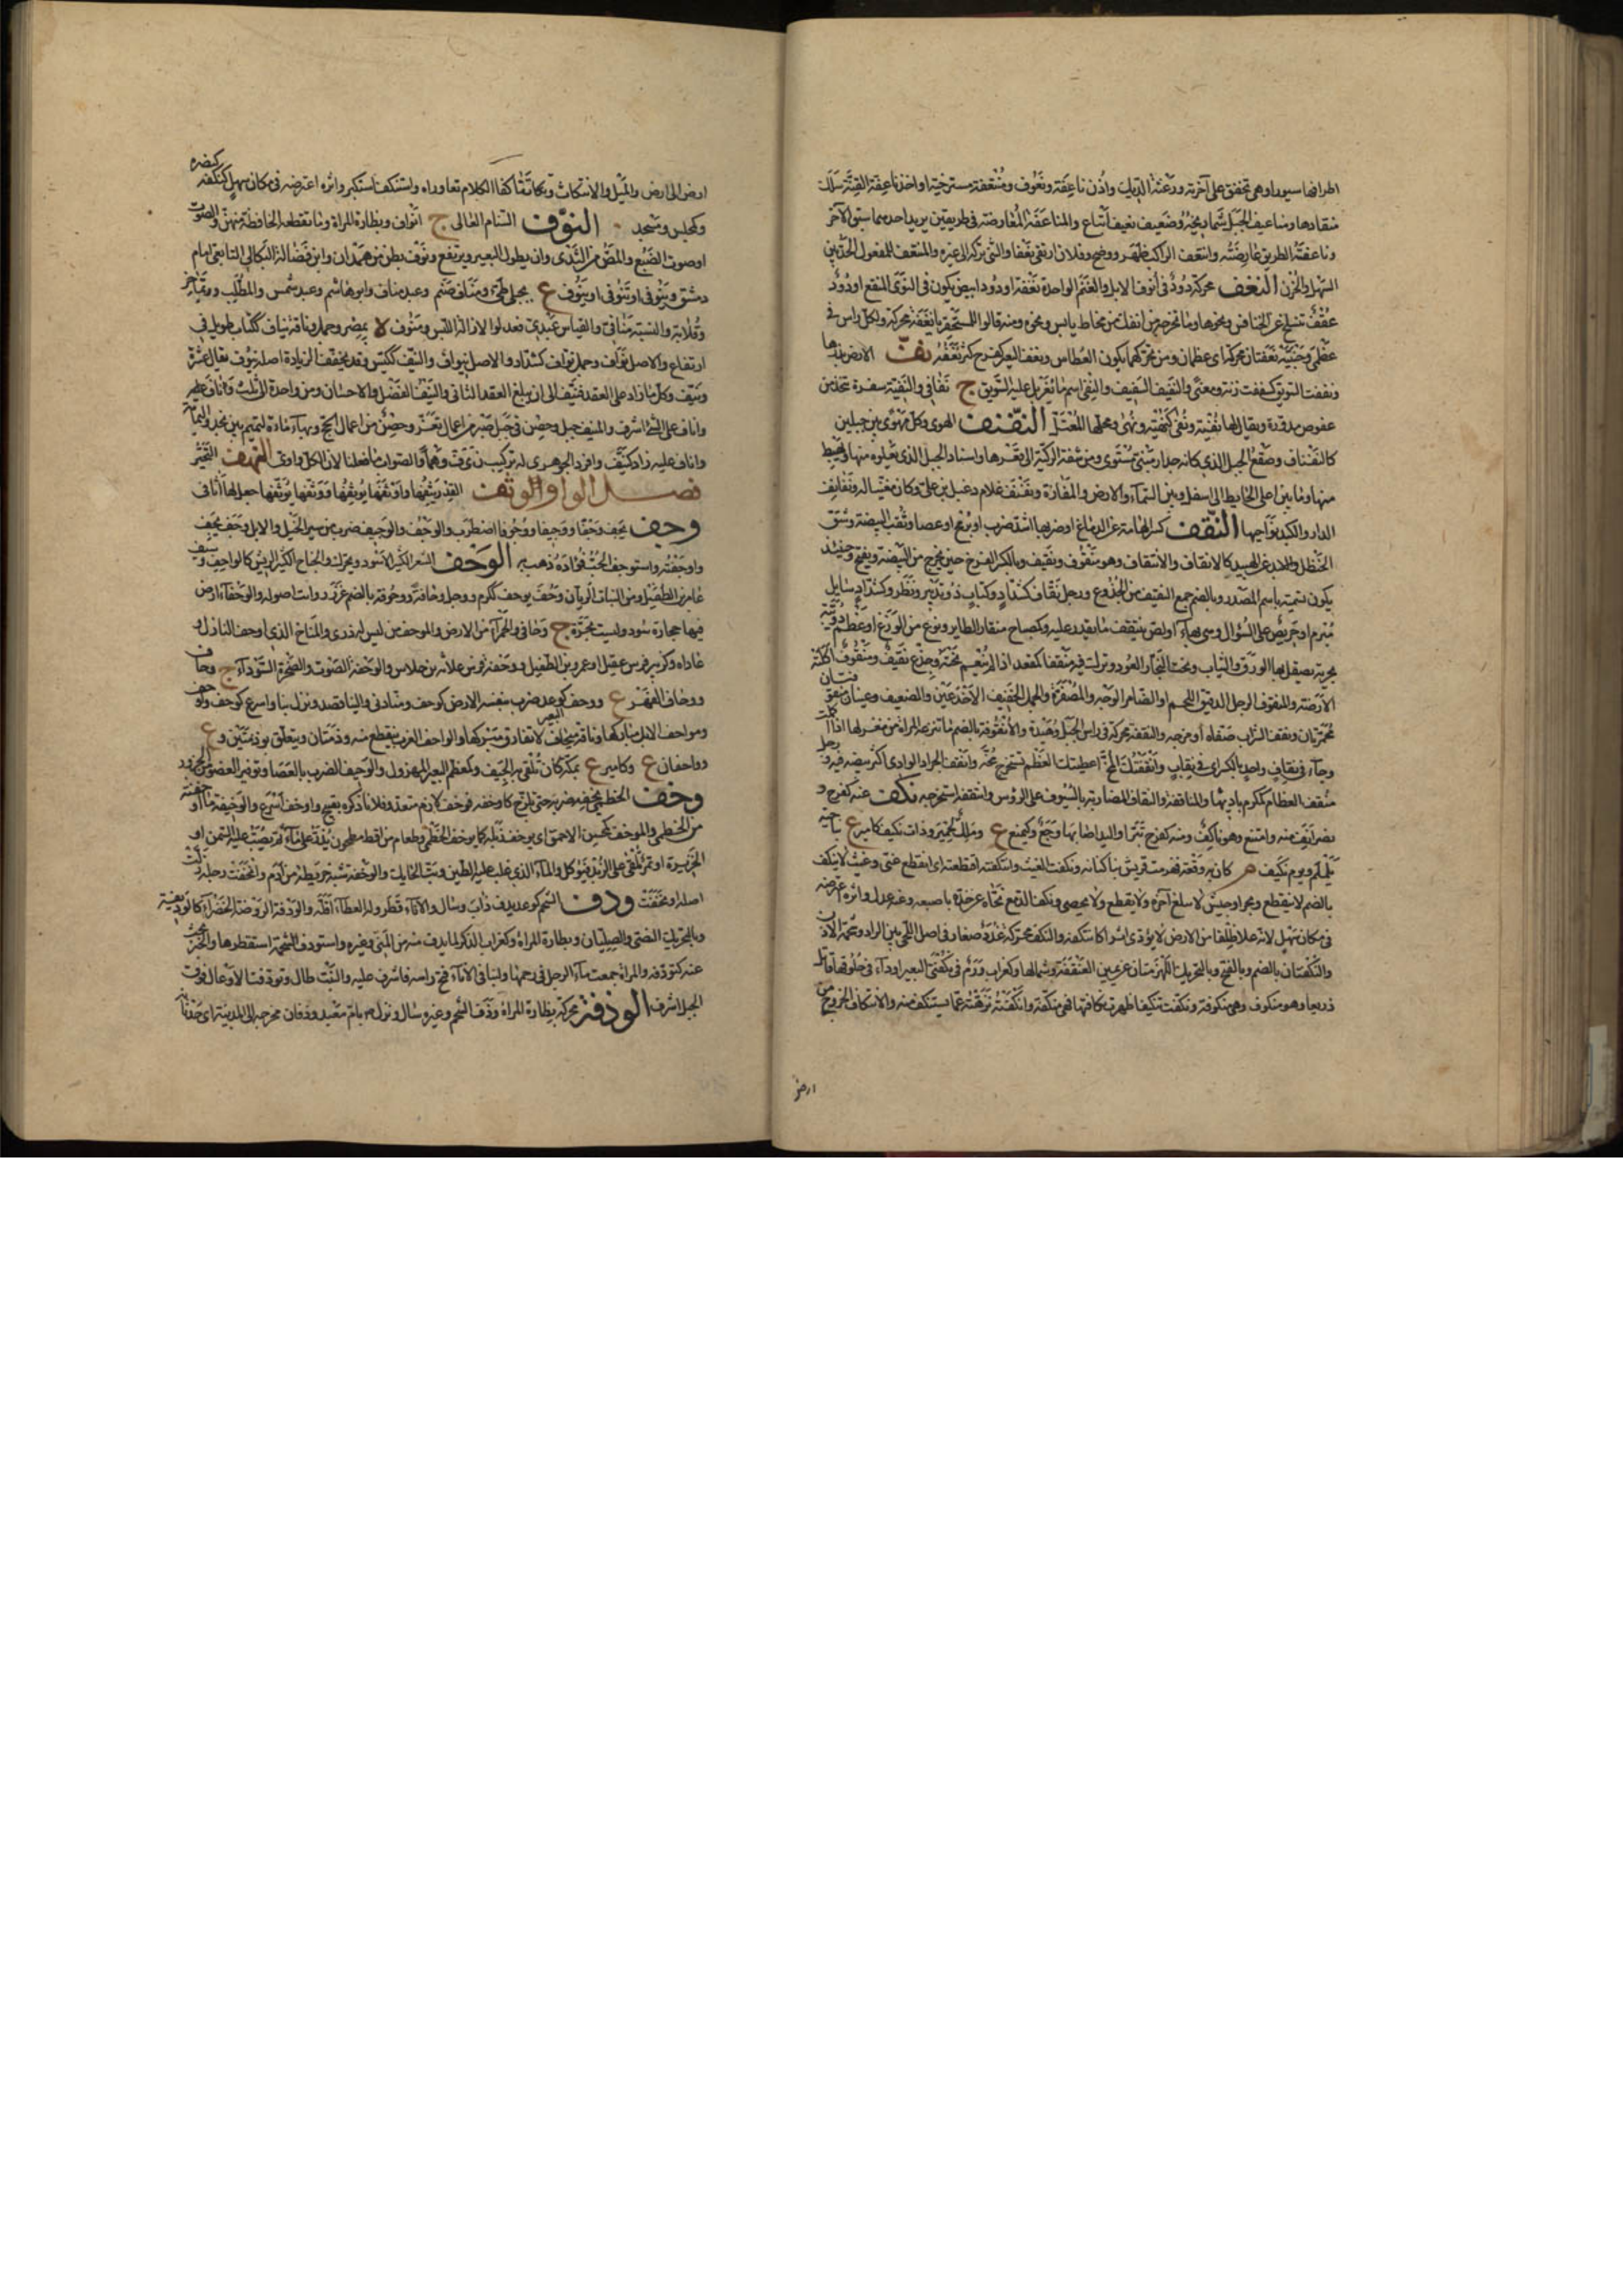 اطرافها سيور او هي تخفق على آخرته ورعثة الديك واذن ناعفة ونعوف ومنتعفة مسترخية واخذ ناعفة القنة سلك
منقادها ومناعيف الجبل شماريخه وضعيف نعيف اتباع والمناعفة المعارضة في طريقين يريد احدهما سبق الآخر
وناعفت الطريق عارضته وانتعف الراكب ظهر ووضح وفلان ارتقى نعفا والشئ تركه الى غيره والمنتعف للمفعول الحد بين
السهل والحزن النغف محركة دود في انوف الابل والغنم الواحدة نغفة او دود ابيض يكون في النوى المنقع او دود
عقف تنسلخ عن الخنافس ونحوها وما تخرجه من انفك من مخاط يابس ونحوه ومنه قالوا للمستحقر يا نغفة محركة ولكل راس في
عظمي وجنتيه نغفتان محركة اي عظمان ومن تحركهما يكون العطاس ونغف البعير كفرح كثر نغفه نفّ الارض بذرها
ونففت السويق كسففت زنة ومعنى والنفيف السفيف والنفي اسم ما تغربل عليه السويق ج نفافي والنفية سفرة تتخذ من
خوص مدورة ويقال لها نفية ونفى كنهية ونهى ومحلها المعتل النفنف الهوى وكل مهوى بين جبلين
كالنفناف وصقع الجبل الذي كانه جدار مبني مستوى ومن شفة الركية الى قعرها واسناد الجبل الذي تعلوه منها وتهبط
منها وما بين اعلى الحايط الى اسفل وبين السماء والارض والمفازة ونفنف غلام دعبل بن علي وكان مغنيا له ونفانف
الدار والكبد نواحيها النقف كسر الهامة عن الدماغ او ضربها اشد ضرب او برمح او عصا وثقب البيضة وشق
الحنظل والهبيد كالانقاف والانتقاف وهو منقوف ونقيف وبالكسر الفرخ حين يخرج من البيضة ويفتح وحينئذ
يكون تسمية باسم المصدر وبالضم جمع النقيف من الجذوع ورجل نقاف كشداد وكتاب ذو تدبير ونظر وكشداد سايل
مبرم او حريص على السؤال وهي بهاء او لص ينتقف ما يقدر عليه وكمصباح منقار الطاير ونوع من الوزغ او عظم دويبة
بحرية يصقل بها الورق والثياب ونحت النجار العود وترك فيه منقفا كمقعد اذا لم ينعم نحته وجذع نقيف ومنقوف اكلته
الارضة والمنقوف الرجل الدقيق القليل اللحم او الضامر الوجه والمصفره والجمل الخفيف الاخدعين والضعيف وعينان منقوفتان
محمرتان ونقف الشراب صفاه او مزجه والنقفة محركة في راس الجبل وهيدة والانقوفة بالضم ما تنزعه المراة من مغزلها اذا كملت
وجاءا في نقاف واحد بالكسر اي في نقاب وانقفتك المخ اعطيتك العظم تستخرج مخه وانقف الجراد الوادي اكثر بيضه فيه ورجل
منقف العظام كمكرم باديها والمناقفة والنقاف المضاربة بالسيوف على الرؤس وانتقفه استخرجه نكف عنه كفرح و
نصر انف منه وامتنع وهو ناكف ومنه كفرح تبرا واليد اصابها وجع وكمنع ع وملك لحمير وذات نكيف كامير ع بناحية
يلملم ويوم نكيف م كان به وقعة فهزمت قريش بنا كنانة ونكفت الغيث وانتكفته اقطعته اي انقطع عني وغيث لا ينكف
بالضم لا ينقطع وبحر او جيش لا يبلغ آخره ولا يقطع ولا يحصى ونكف الدمع نحاه عن خده باصبعه وعنه عدل واثره اعترضه
في مكان سهل لانه علا ظلفا من الارض لا يؤدي اثرا كانتكفه والنكف محركة غدد صغار في اصل اللحى بين الراد وشحمة الاذن
والنكفتان بالضم وبالفتح وبالتحريك اللهزمتان عن يمين العنفقة وشمالها وكغراب ورم في نكفتي البعير او داء في حلوقها قاتل
ذريعا وهو منكوف وهي منكوفة ونكفت تنكيفا ظهرت نكافتها فهي منكفة وانكفته نزهته عما يستنكف منه والانتكاف الخروج من
ارض
ارض الى ارض والميل والانتكاث وتناكفا الكلام تعاوراه واستنكف استكبر واثره اعترضه في مكان سهل كنكفه كنصره
وكمجلس ومسجد النوف السنام العالي ج انواف وبظارة المراة وما تقطعه الخافضة منهن والصوت
او صوت الضبع والمص من الثدى وان يطول البعير ويرتفع ونوف بطن من همدان وابن فضالة البكالي التابعي امام
دمشق وينوفى او تنوفى او ينوف ع بجبلي طيئ ومناف صنم وعبد مناف وابو هاشم وعبد شمس والمطلب وتماضر
وقلابة والنسبة منافي والقياس عبدي فعدلوا لازالة اللبس ومنوف لا بمصر وجمل وناقة نياف ككتاب طويل في
ارتفاع والاصل نواف وجمل نياف كشداد والاصل نيواف والنيف ككيس وقد يخفف الزيادة اصله نيوف يقال عشرة
ونيف وكل ما زاد على العقد فنيف الى ان يبلغ العقد الثاني والنيف الفضل والاحسان ومن واحدة الى ثلث واناف عليه
واناف على الشئ اشرف والمنيف جبل وحصن في جبل صبر من اعمال تعز وحصن من اعمال لحج وبهاء ماءة لتميم بين نجد واليمامة
واناف عليه زاد كنيف وافرد الجوهري له تركيب ن ي ف وهما والصواب ما فعلنا لان الكل واوي النهف التحير
فصل الواو الوثف القدر يثفها واوثفها يوثفها ووثفها يوثفها جعل لها اثافي
وجف يجف وجفا ووجيفا ووجوفا اضطرب والوجف والوجيف ضرب من سير الخيل والابل وجف يجف
واوجفته واستوجف الحب فؤاده ذهب به الوحف الشعر الكثير الاسود ويحرك والجناح الكثير الريش كالواحف وسيف
عامر بن الطفيل ومن النبات الريان وحف يوحف ككرم ووجل وحافة ووحوفة بالضم غزر واثت اصوله والوحفاء ارض
فيها حجارة سود وليست بحرة ج وحافى والحمراء من الارض والموحف من ليس له ذرى والمناخ الذي اوحف البازل و
عاداه وكزبير فرس عقيل او عمرو بن الطفيل ووحفة فرس علاثة بن جلاس والوحفة الصوت والصخرة السوداء ج وحاف
ووحاف القهر ع ووحف كوعد ضرب بنفسه الارض كوحف ومنا دنى والينا قصد ونزل بنا واسرع كوحف واوحف
ومواحف الابل مباركها وناقة ميحاف لا تفارق مبركها والواحف الغرب ينقطع منه وذمتان ويتعلق بوذمتين وع
وواحفان ع وكامير ع بمكة كان تلقى به الجيف وكمعظم البعير المهزول والوحيف الضرب بالعصا وتوفير العضو من الجزور
وخف الخطمي يخفه ضربه حتى تلزج كاوخفه فوخف لازم متعد وفلانا ذكره بقبيح واوخف اسرع والوخيفة ما اوخفته
من الخطمي والموخف كمحسن الاحمق اي يوخف زبله كما يوخف الخطمي وطعام من اقط مطحون يذر على ماء ثم يصب عليه السمن او
الخزيرة او تمر يلقى على الزبد فيؤكل والماء الذي غلب عليه الطين وبت الحايك والوخفة شبه خريطة من ادم واتخفت رجله زلت
اصله اوتخفت ودف الشحم كوعد يدف ذاب وسال والاناء قطر وله العطاء اقله والودفة الروضة الخضراء كالوديفة
وبالتحريك النصى والصليان وبظارة المراة وكغراب الذكر لما يدف منه من المني وغيره واستودف الشحمة استقطرها والخبر بحث
عنه كتودفه والمراة جمعت ماء الرجل في رحمها ولبنا في الاناء فتح راسه فاشرف عليه والنبت طال وتودفت الاوعال فوق
الجبل اشرف الوذفة محركة بظارة المراة وذف الشحم وغيره سال ونزل صلعم بام معبد وذفان مخرجه الى المدينة اي حدثان